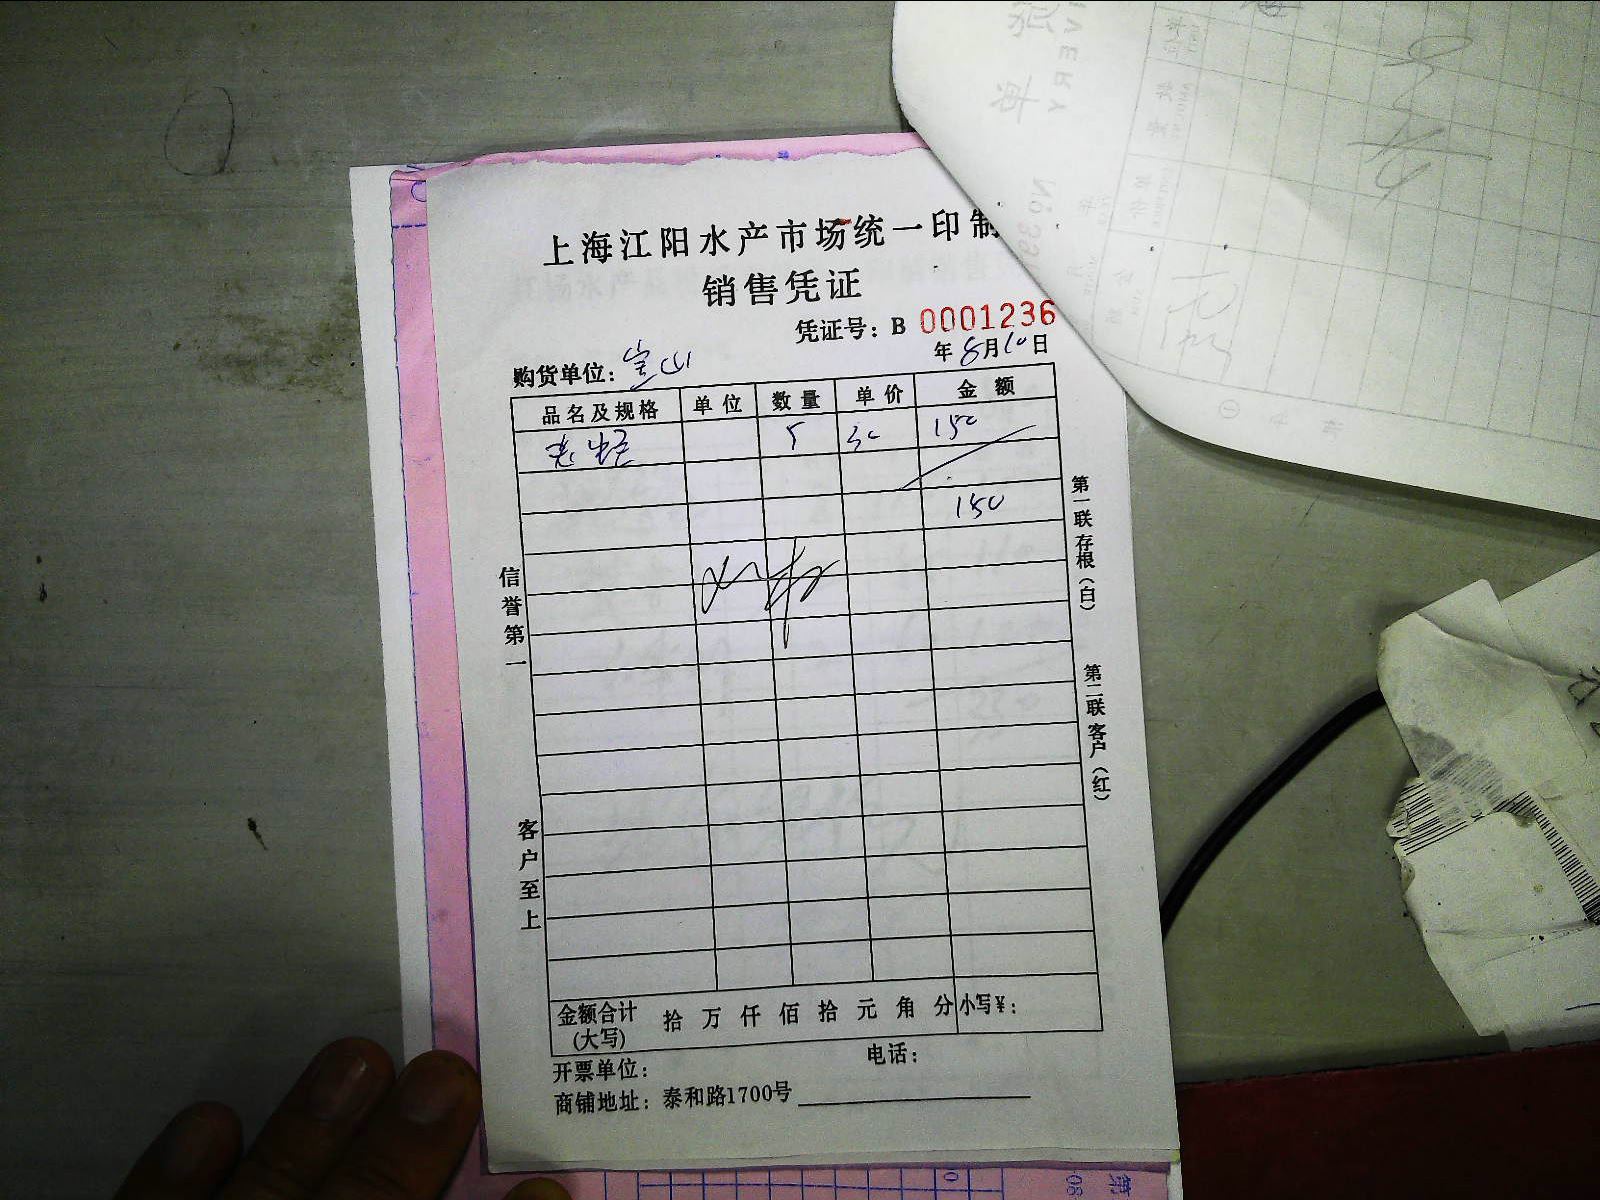 上海江阳水产市场统一印制
销售凭证
凭证号：B 0001236
年 8月10日
购货单位：宝山
品名及规格 单位 数量 单价 金额
5 30 150
150
信誉第一
客户至上
第一联 存根（白）
第二联 客户（红）
金额合计(大写) 拾 万 仟 佰 拾 元 角 分 小写¥：
开票单位： 电话：
商铺地址：泰和路1700号